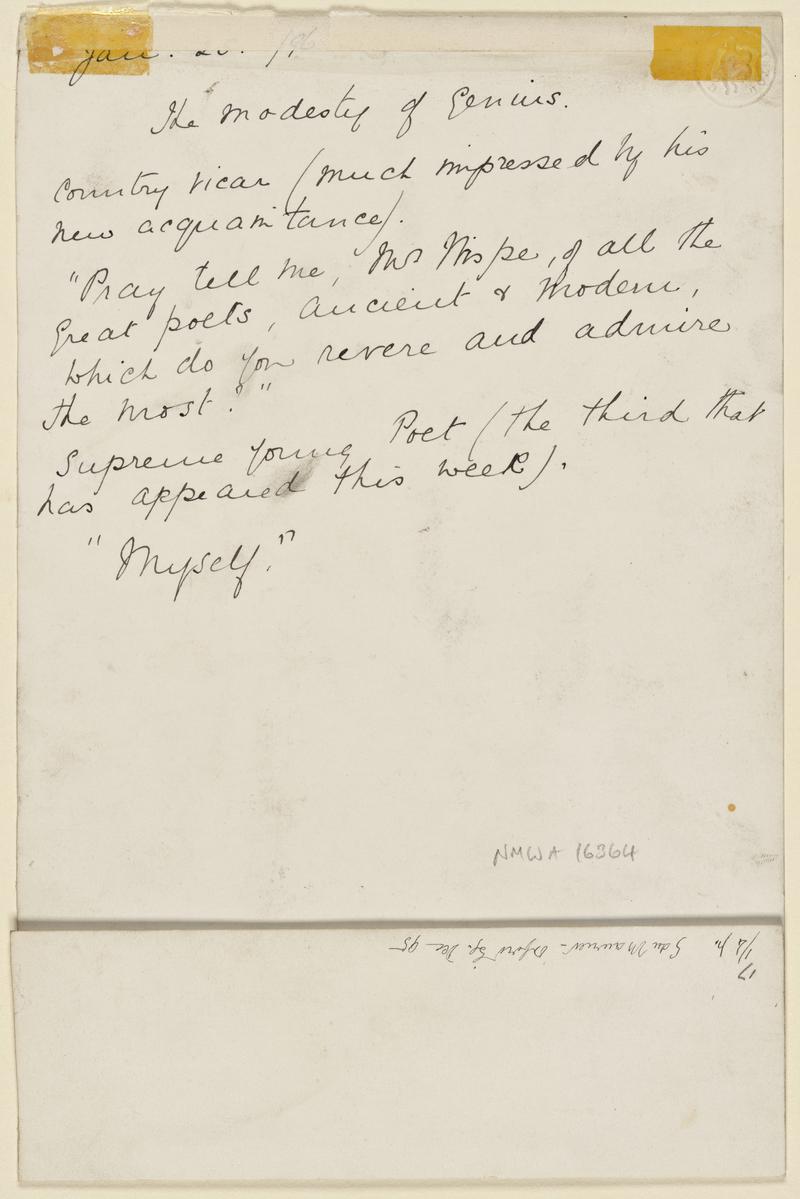 Jan.
The Modesty of Genius.
Country Vicar (much impressed by his
new acquaintance).
"Pray tell me, Mr Wispe, of all the
Great poets, ancient & modern,
which do you revere and admire
the most?"
Supreme Young Poet (the third that
has appeared this week).
"Myself."
NMWA 16364
17
1/2 p. Du Maurier - Dec 95